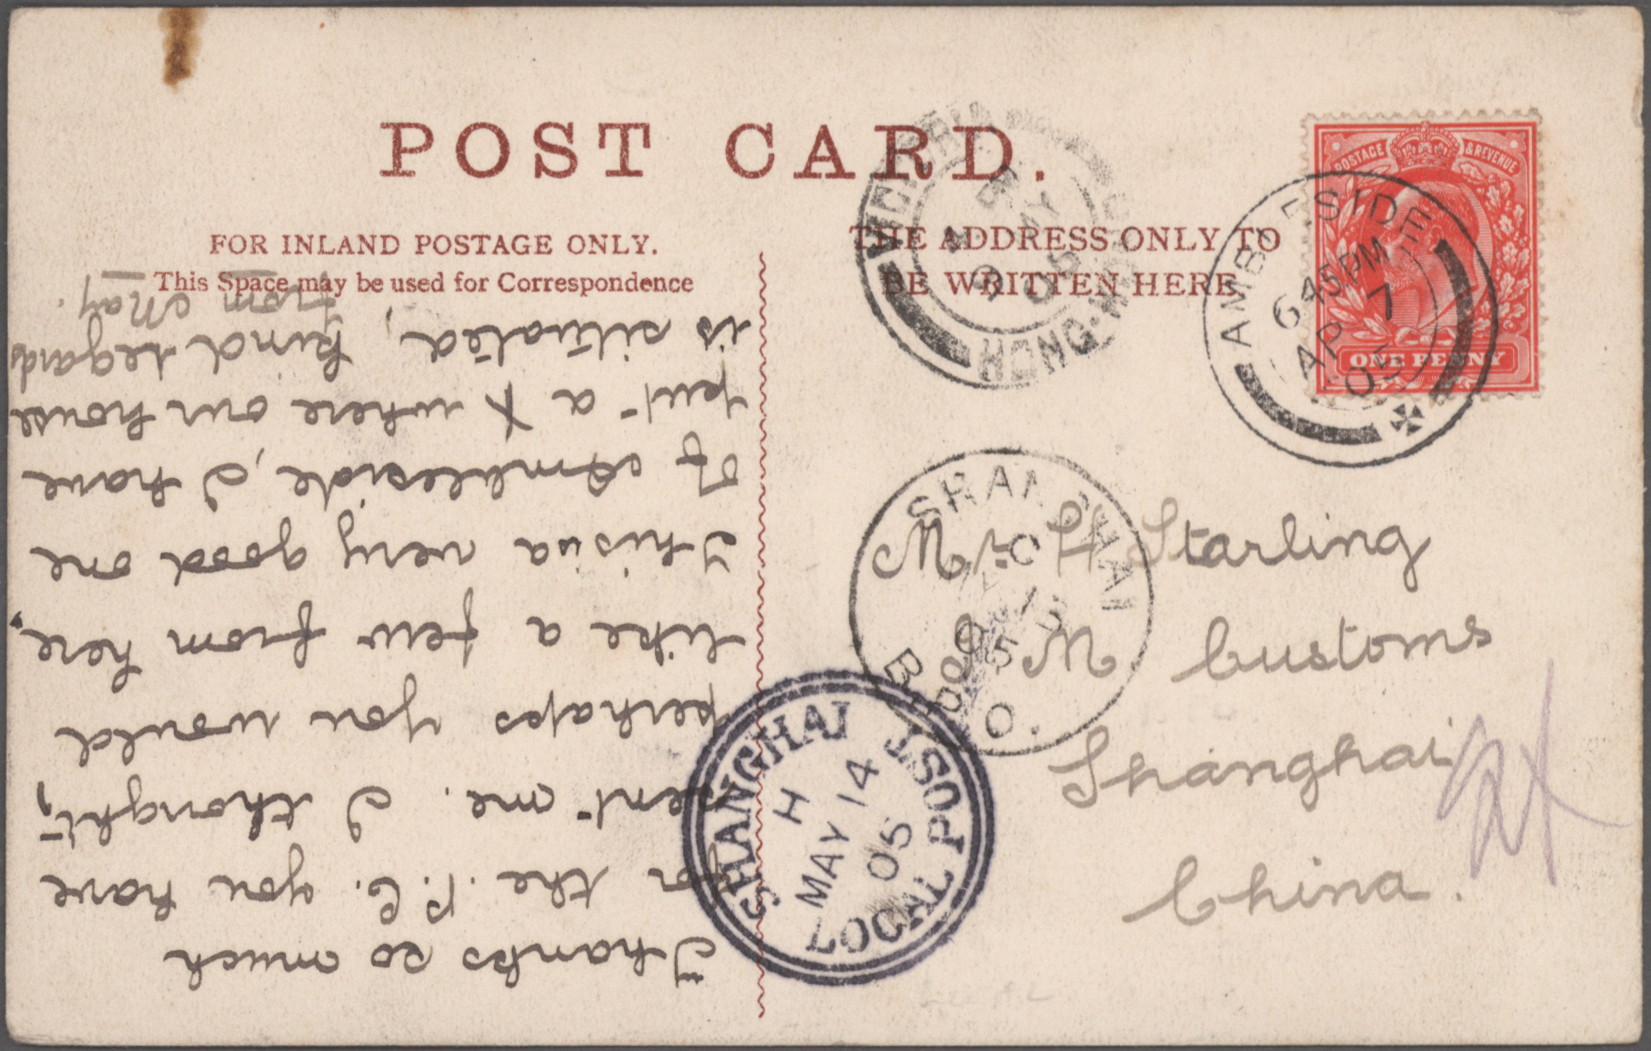 POST CARD.
FOR INLAND POSTAGE ONLY.
This Space may be used for Correspondence
THE ADDRESS ONLY TO
BE WRITTEN HERE
POSTAGE & REVENUE
ONE PENNY
AMBLESIDE
6 45 PM
AP 7
05
VICTORIA
HONG-KONG
MY
05
SHANGHAI
B.P.O.
SHANGHAI
LOCAL POST
H
MAY 14
05
Mr H Starling
M Customs
Shanghai
China.
Thanks so much
for the P.C. you have
sent me. I thought,
perhaps you would
like a few from here,
This is a very good one
of Ambleside, I have
put a X where our house
is situated, kind regards
from May.